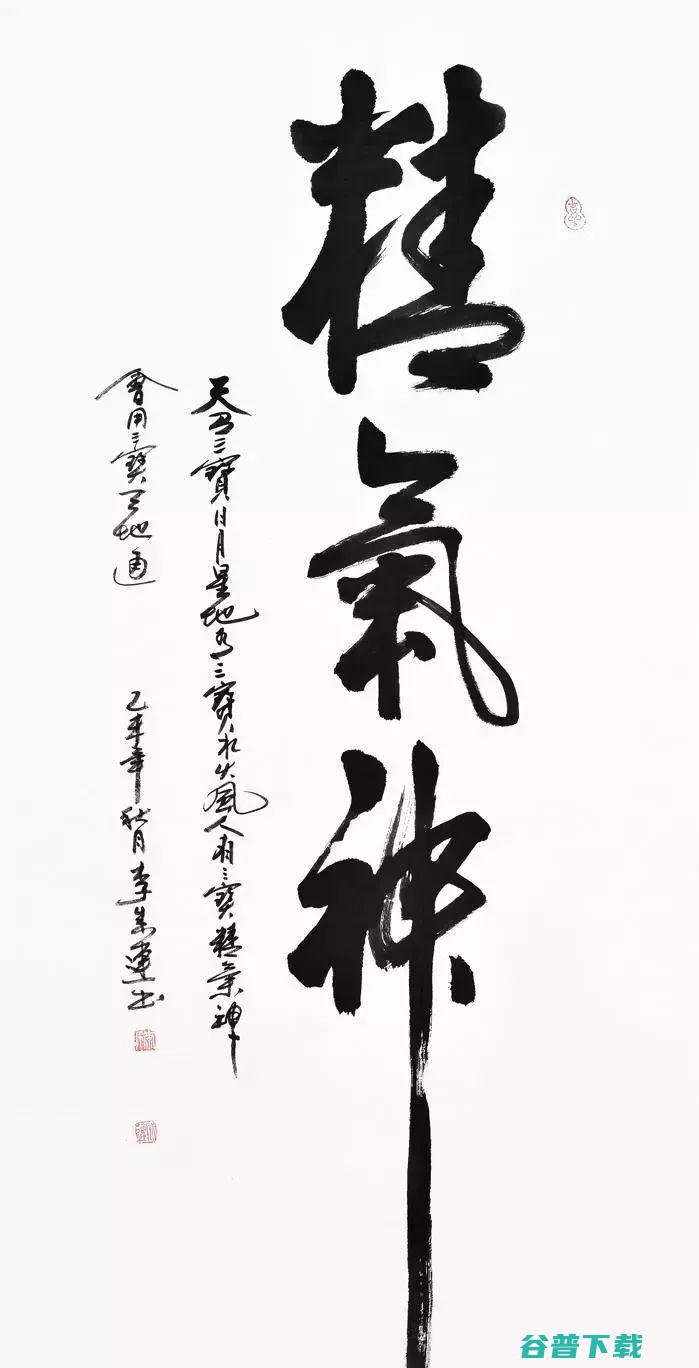 精氣神
天有三寶日月星地有三寶水火風人有三寶精氣神
會用三寶天地通
乙未年秋月李運书
谷普下载